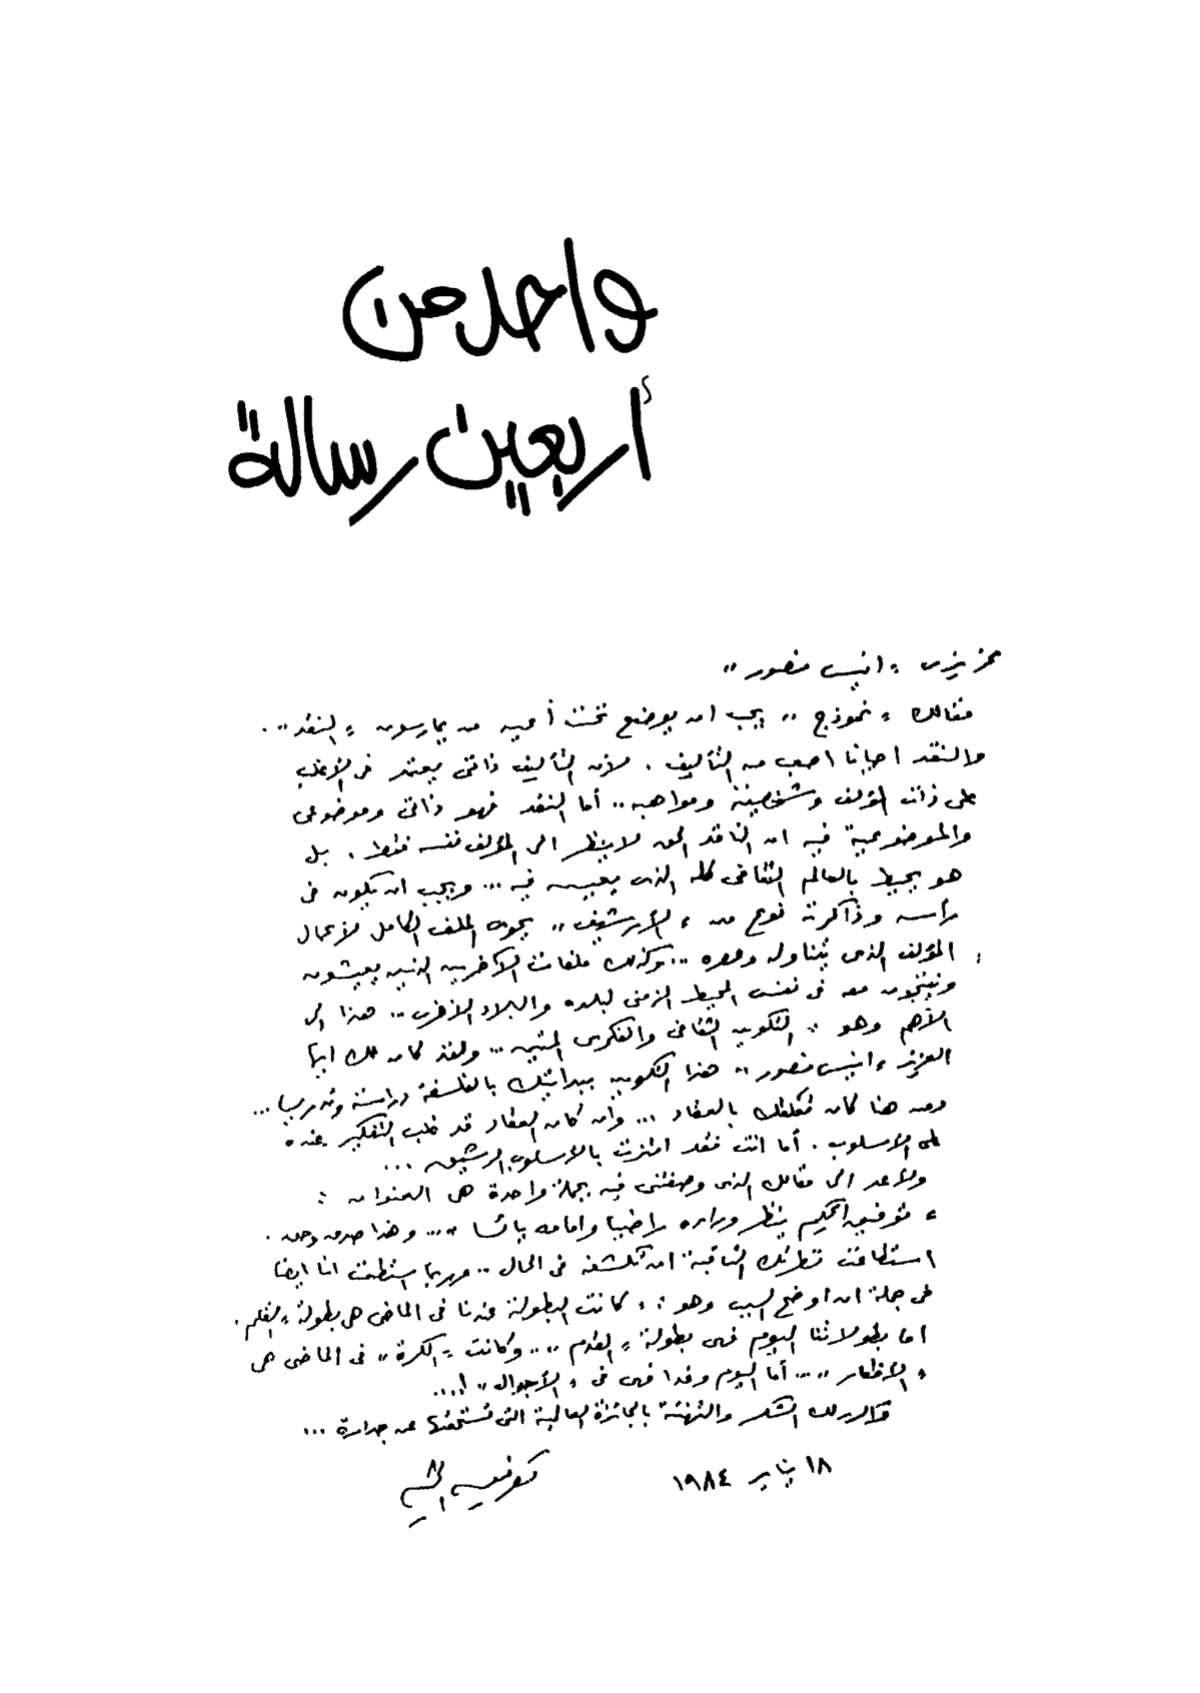 واحد من
أربعين رسالة
عزيزى « انيس منصور »
مقالك « نموذج » يجب ان يوضع تحت أعين من يمارسون « النقد » .
والنقد احيانا اصعب من التأليف . لأن التأليف ذاتى يعتمد فى الأغلب
على ذات المؤلف وشخصيته ومواهبه .. أما النقد فهو ذاتى وموضوعى
والموضوعية فيه ان الناقد الحق لا ينظر الى المؤلف نفسه فقط . بل
هو يحيط بالعالم الثقافى كله الذى يعيش فيه ... ويجب ان يكون فى
رأسه وذاكرته نوع من « الأرشيف » يحوى الملف الكامل لأعمال
المؤلف الذى يتناوله وعصره .. وكذلك ملفات الآخرين الذين يعيشون
وينتجون معه فى نفس المحيط الزمنى لبلده والبلاد الأخرى .. هذا الى
الأهم وهو : التكوين الثقافى والفكرى المتين ... ولقد كان لك ايها
العزيز « انيس منصور » هذا التكوين ببدايتك بالفلسفة دراسة وتدريسا ...
ومن هنا كان تعلقك بالعقاد ... وان كان العقاد قد غلب التفكير عنده
على الأسلوب . أما انت فقد امتزت بالأسلوب الرشيق ...
ولأعد الى مقالك الذى وصفتنى فيه بجملة واحدة هى العنوان :
« توفيق الحكيم ينظر وراءه راضيا وامامه يائسا » ... وهذا صدق وحق .
استطاعت نظرتك الثاقبة ان تكشفه فى الحال .. وربما استطعت انا ايضا
فى جملة ان أوضح السبب وهو : « كانت البطولة عندنا فى الماضى هى بطولة « القلم .
اما بطولاتنا اليوم فهى بطولة « القدم » .. وكانت « الكرة » فى الماضى هى
« الأفكار » ... أما اليوم وغدا فهى فى « الأجوال » ! ...
لك الشكر والتهنئة بالجائزة العالمية التى تستحقها عن جدارة ...
١٨ يناير ١٩٨٤
توفيق الحكيم